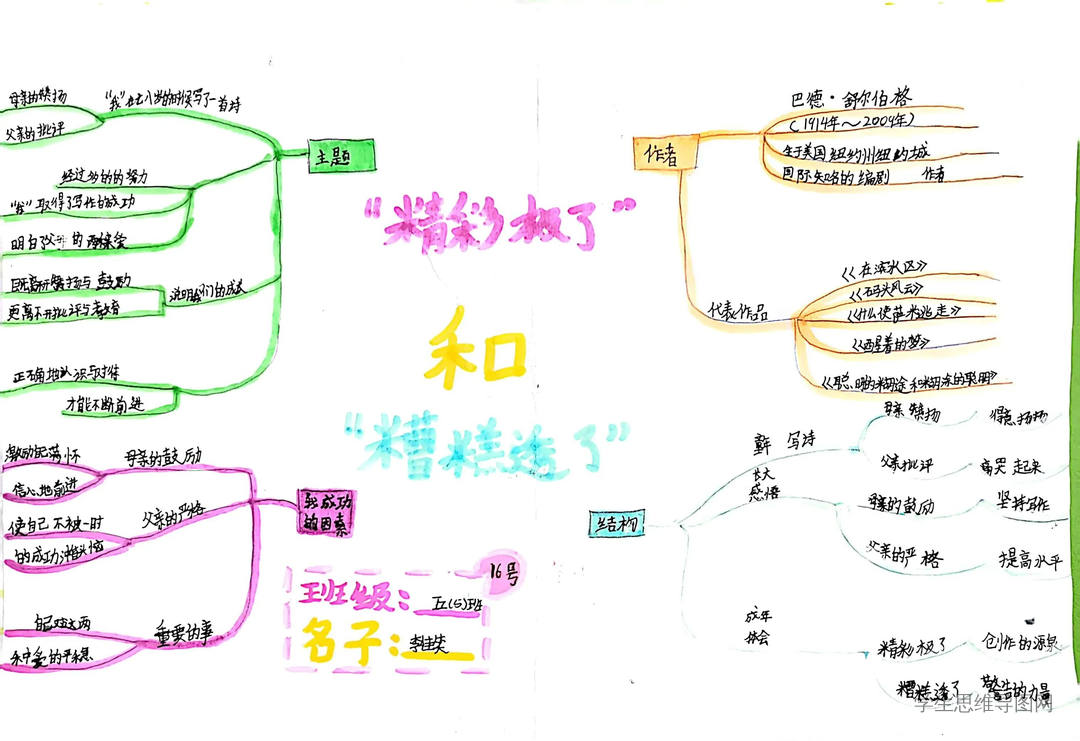 "精彩极了"
和
"糟糕透了"
主题
"我"在七八岁的时候写了一首诗
母亲的赞扬
父亲的批评
经过多的的努力
"我"取得了写作的成功
明白父母的两种爱
说明我们的成长
既离不开赞扬与鼓励
更离不开批评与教育
正确地认识与对待
才能不断前进
我成功
的因素
母亲的鼓励
激励自己满怀
信心地前进
父亲的严格
使自己不被一时
的成功冲昏头脑
重要的事
自己对这两
种爱的平衡
作者
巴德·舒尔伯格
(1914年~2009年)
生于美国纽约州纽约城
国际知名的编剧 作者
代表作品
《在滨水区》
《码头风云》
《什么使萨米逃走》
《醒着的梦》
《聪明的糊涂和糊涂的聪明》
结构
童年 写诗
母亲赞扬 得意扬扬
父亲批评 痛哭起来
长大
感悟
母亲的鼓励 坚持写作
父亲的严格 提高水平
成年
体会
精彩极了 创作的源泉
糟糕透了 警告的力量
16号
班级:五(5)班
名子:李佳
学生思维导图网